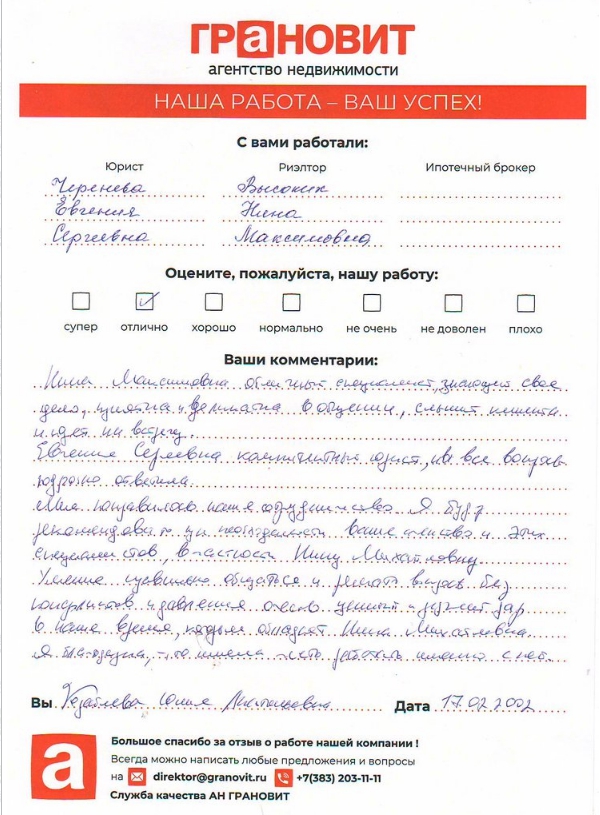 ГРаНОВИТ
агентство недвижимости
НАША РАБОТА – ВАШ УСПЕХ!
С вами работали:
Юрист Риэлтор Ипотечный брокер
Черенева Высоких
Евгения Нина
Сергеевна Максимовна
Оцените, пожалуйста, нашу работу:
супер отлично хорошо нормально не очень не доволен плохо
Ваши комментарии:
Нина Максимовна отличный специалист, знающий свое
дело, приятна и деликатна в общении, слышит клиента
и идет на встречу.
Евгения Сергеевна компетентный юрист, на все вопросы
подробно ответила.
Мне понравилось наше сотрудничество. Я буду
рекомендовать при необходимости ваше агентство и этих
специалистов, в частности Нину Михайловну
Умение правильно общаться и решать вопросы без
конфликтов и давления очень ценный дар
в наше время, которым обладает Нина Михайловна
Я благодарна, работать именно с ней.
Вы Юлия Анатольевна Дата 17.02.2002
Большое спасибо за отзыв о работе нашей компании !
Всегда можно написать любые предложения и вопросы
на direktor@granovit.ru +7(383) 203-11-11
Служба качества АН ГРАНОВИТ
а